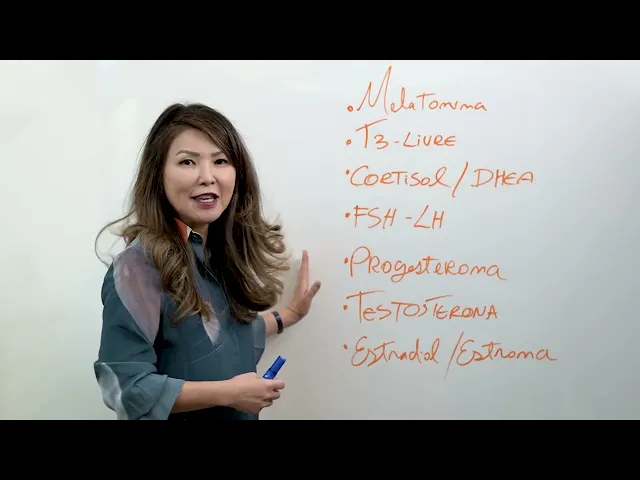 • Melatonina
• T3-Livre
• Cortisol/DHEA
• FSH-LH
• Progesterona
• Testosterona
• Estradiol/Estrona